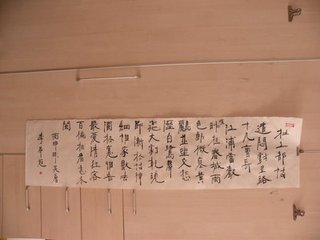 杜工部詩
遣悶戲呈路
十九曹長
江浦雷聲
昨夜春城雨
色動微寒黃
鸝並坐交愁
濕白鷺群
飛太劇乾晚
節漸於詩律
細誰家數去
酒杯寬惟吾
最愛清狂客
百遍相看意未
闌